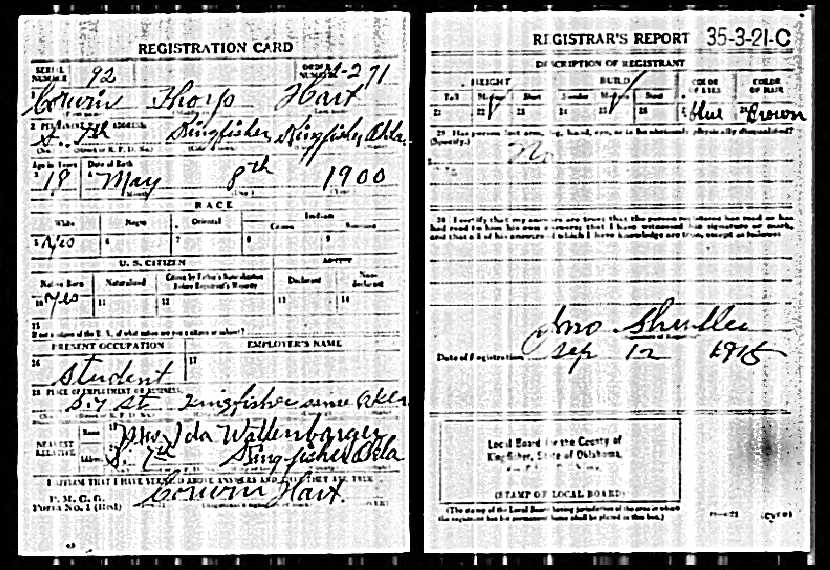 REGISTRATION CARD
SERIAL NUMBER 92 ORDER NUMBER 271
1 Corwin Thorp Hart
2 PERMANENT HOME ADDRESS
S. 7th Kingfisher, Kingfisher, Okla
Age in Years Date of Birth
3 18 4 May 8th 1900
RACE
White Negro Oriental Indian
Citizen
5 Yes 6 7 8 9
U. S. CITIZEN
Native Born Naturalized Citizen by Father's Naturalization Before Registrant's Majority Declarant Non-declarant
10 Yes 11 12 13 14
15
If not a citizen of the U. S., of what nation are you a citizen or subject?
PRESENT OCCUPATION EMPLOYER'S NAME
16 Student 17
18 PLACE OF EMPLOYMENT OR BUSINESS
S. 7 St. Kingfisher same Okla
NEAREST RELATIVE
Name 19 Mrs Ida Wallenbarger
Address S. 7th Kingfisher Okla
I AFFIRM THAT I HAVE VERIFIED ABOVE ANSWERS AND THAT THEY ARE TRUE
P. M. G. O.
Form No. 1 (Red)
Corwin Hart
REGISTRAR'S REPORT 35-3-21-C
DESCRIPTION OF REGISTRANT
HEIGHT BUILD COLOR OF EYES COLOR OF HAIR
Tall Medium Short Slender Medium Stout
21 22 23 24 25 26 27 Blue 28 Brown
29 Has person lost arm, leg, hand, eye, or is he obviously physically disqualified?
(Specify.) No
30 I certify that my answers are true; that the person registered has read or has
had read to him his own answers; that I have witnessed his signature or mark,
and that all of his answers of which I have knowledge are true, except as follows:
Jno Shuller
Date of Registration Sep 12 1918
Local Board for the County of
Kingfisher, State of Oklahoma,
(STAMP OF LOCAL BOARD)
(The stamp of the Local Board having jurisdiction of the area in which
the registrant has his permanent home shall be placed in this box.)
(OVER)